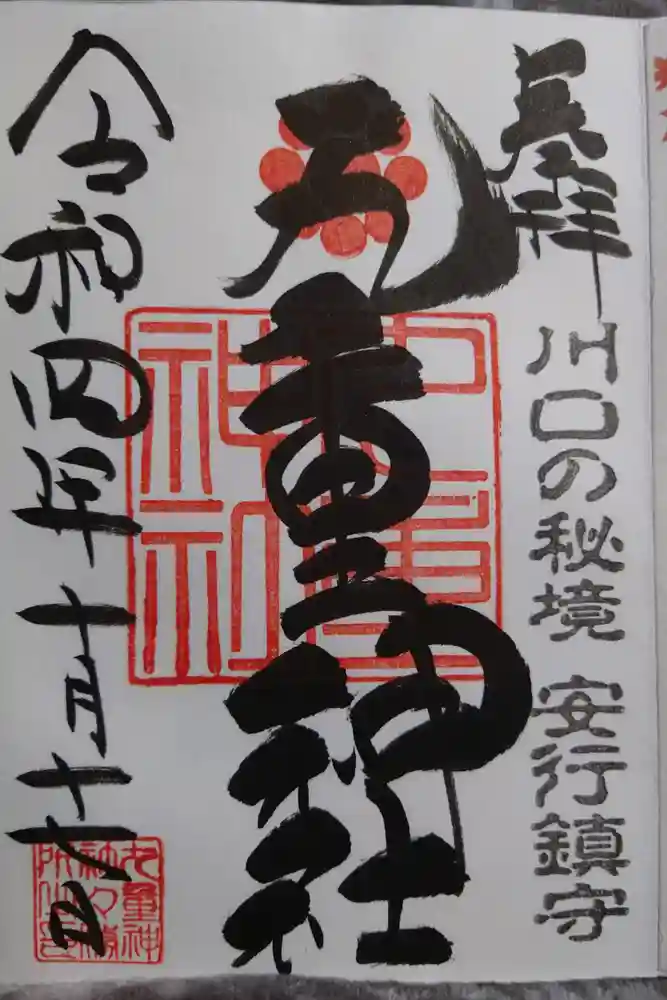 奉拝
川口の秘境 安行鎮守
九重神社
九重神社
令和四年十月十日
九重神
社々務
所之印